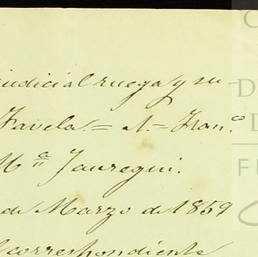 judicial ruega y su-
Favela = A = Fran.co
Ma. Jauregui.
de Marzo de 1859
correspondiente